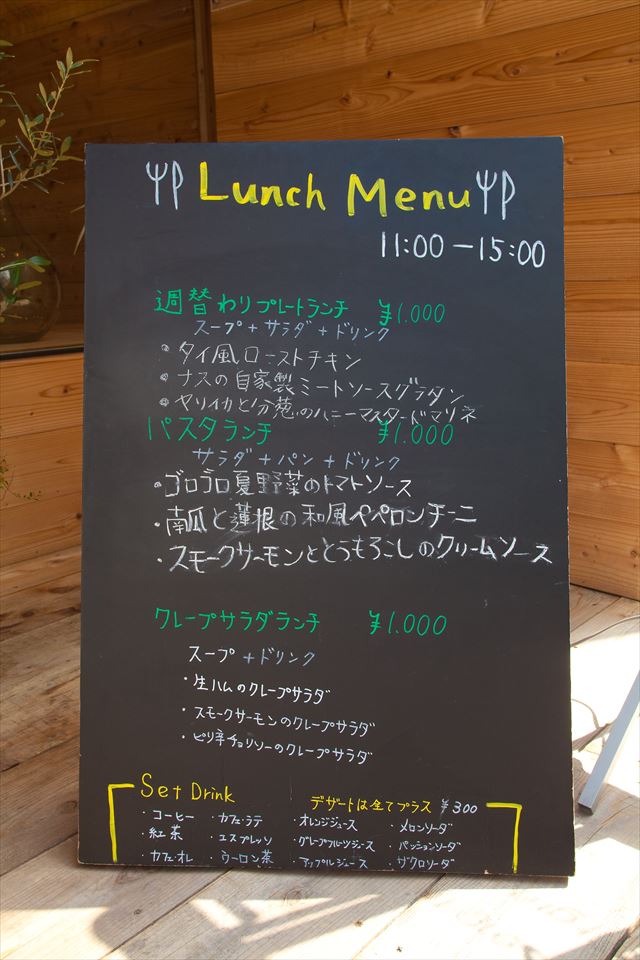 Lunch Menu
11:00-15:00
週替わりプレートランチ ¥1.000
スープ+サラダ+ドリンク
・タイ風ローストチキン
・ナスの自家製ミートソースグラタン
・ヤリイカと分葱のハニーマスタードマリネ
パスタランチ ¥1.000
サラダ+パン+ドリンク
・ゴロゴロ夏野菜のトマトソース
・南瓜と蓮根の和風ペペロンチーニ
・スモークサーモンととうもろこしのクリームソース
クレープサラダランチ ¥1.000
スープ+ドリンク
・生ハムのクレープサラダ
・スモークサーモンのクレープサラダ
・ピリ辛チョリソーのクレープサラダ
Set Drink デザートは全てプラス ¥300
・コーヒー ・カフェ・ラテ ・オレンジジュース ・メロンソーダ
・紅茶 ・エスプレッソ ・グレープフルーツジュース ・パッションソーダ
・カフェ・オレ ・ウーロン茶 ・アップルジュース ・ザクロソーダ